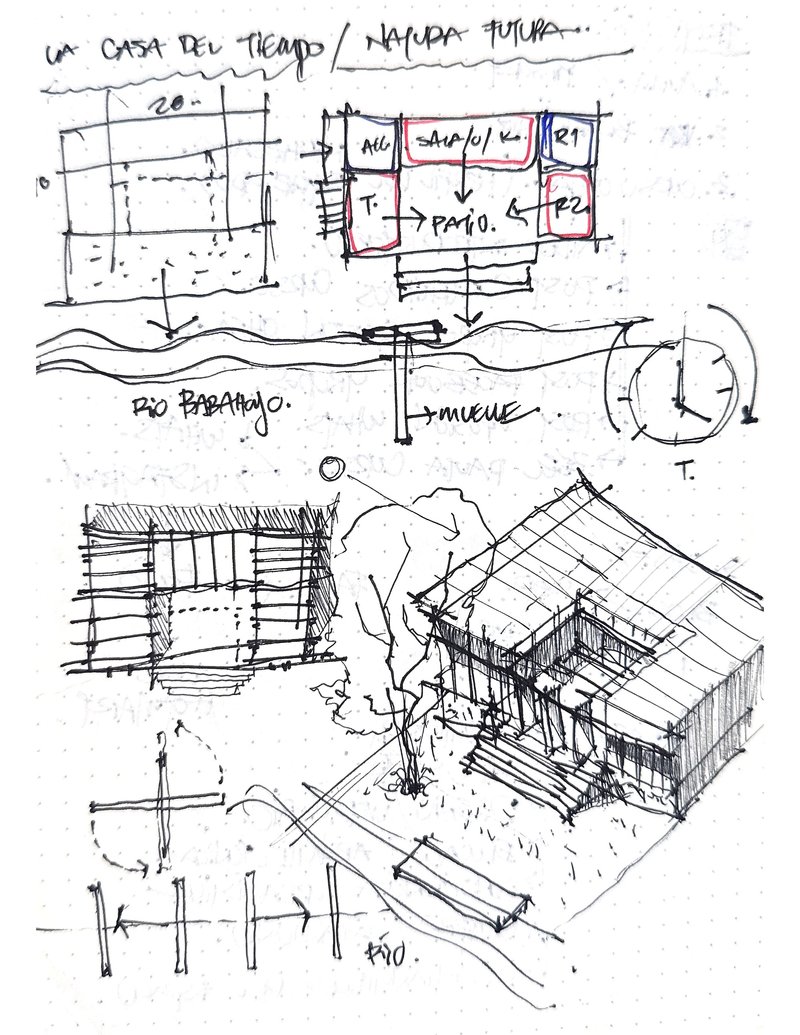 LA CASA DEL TIEMPO / NATURA FUTURA...
20-
ALC
SALA/C/K.
R1
T.
PATIO.
R2.
RIO BABAHOYO.
MUELLE.
T.
RÍO.